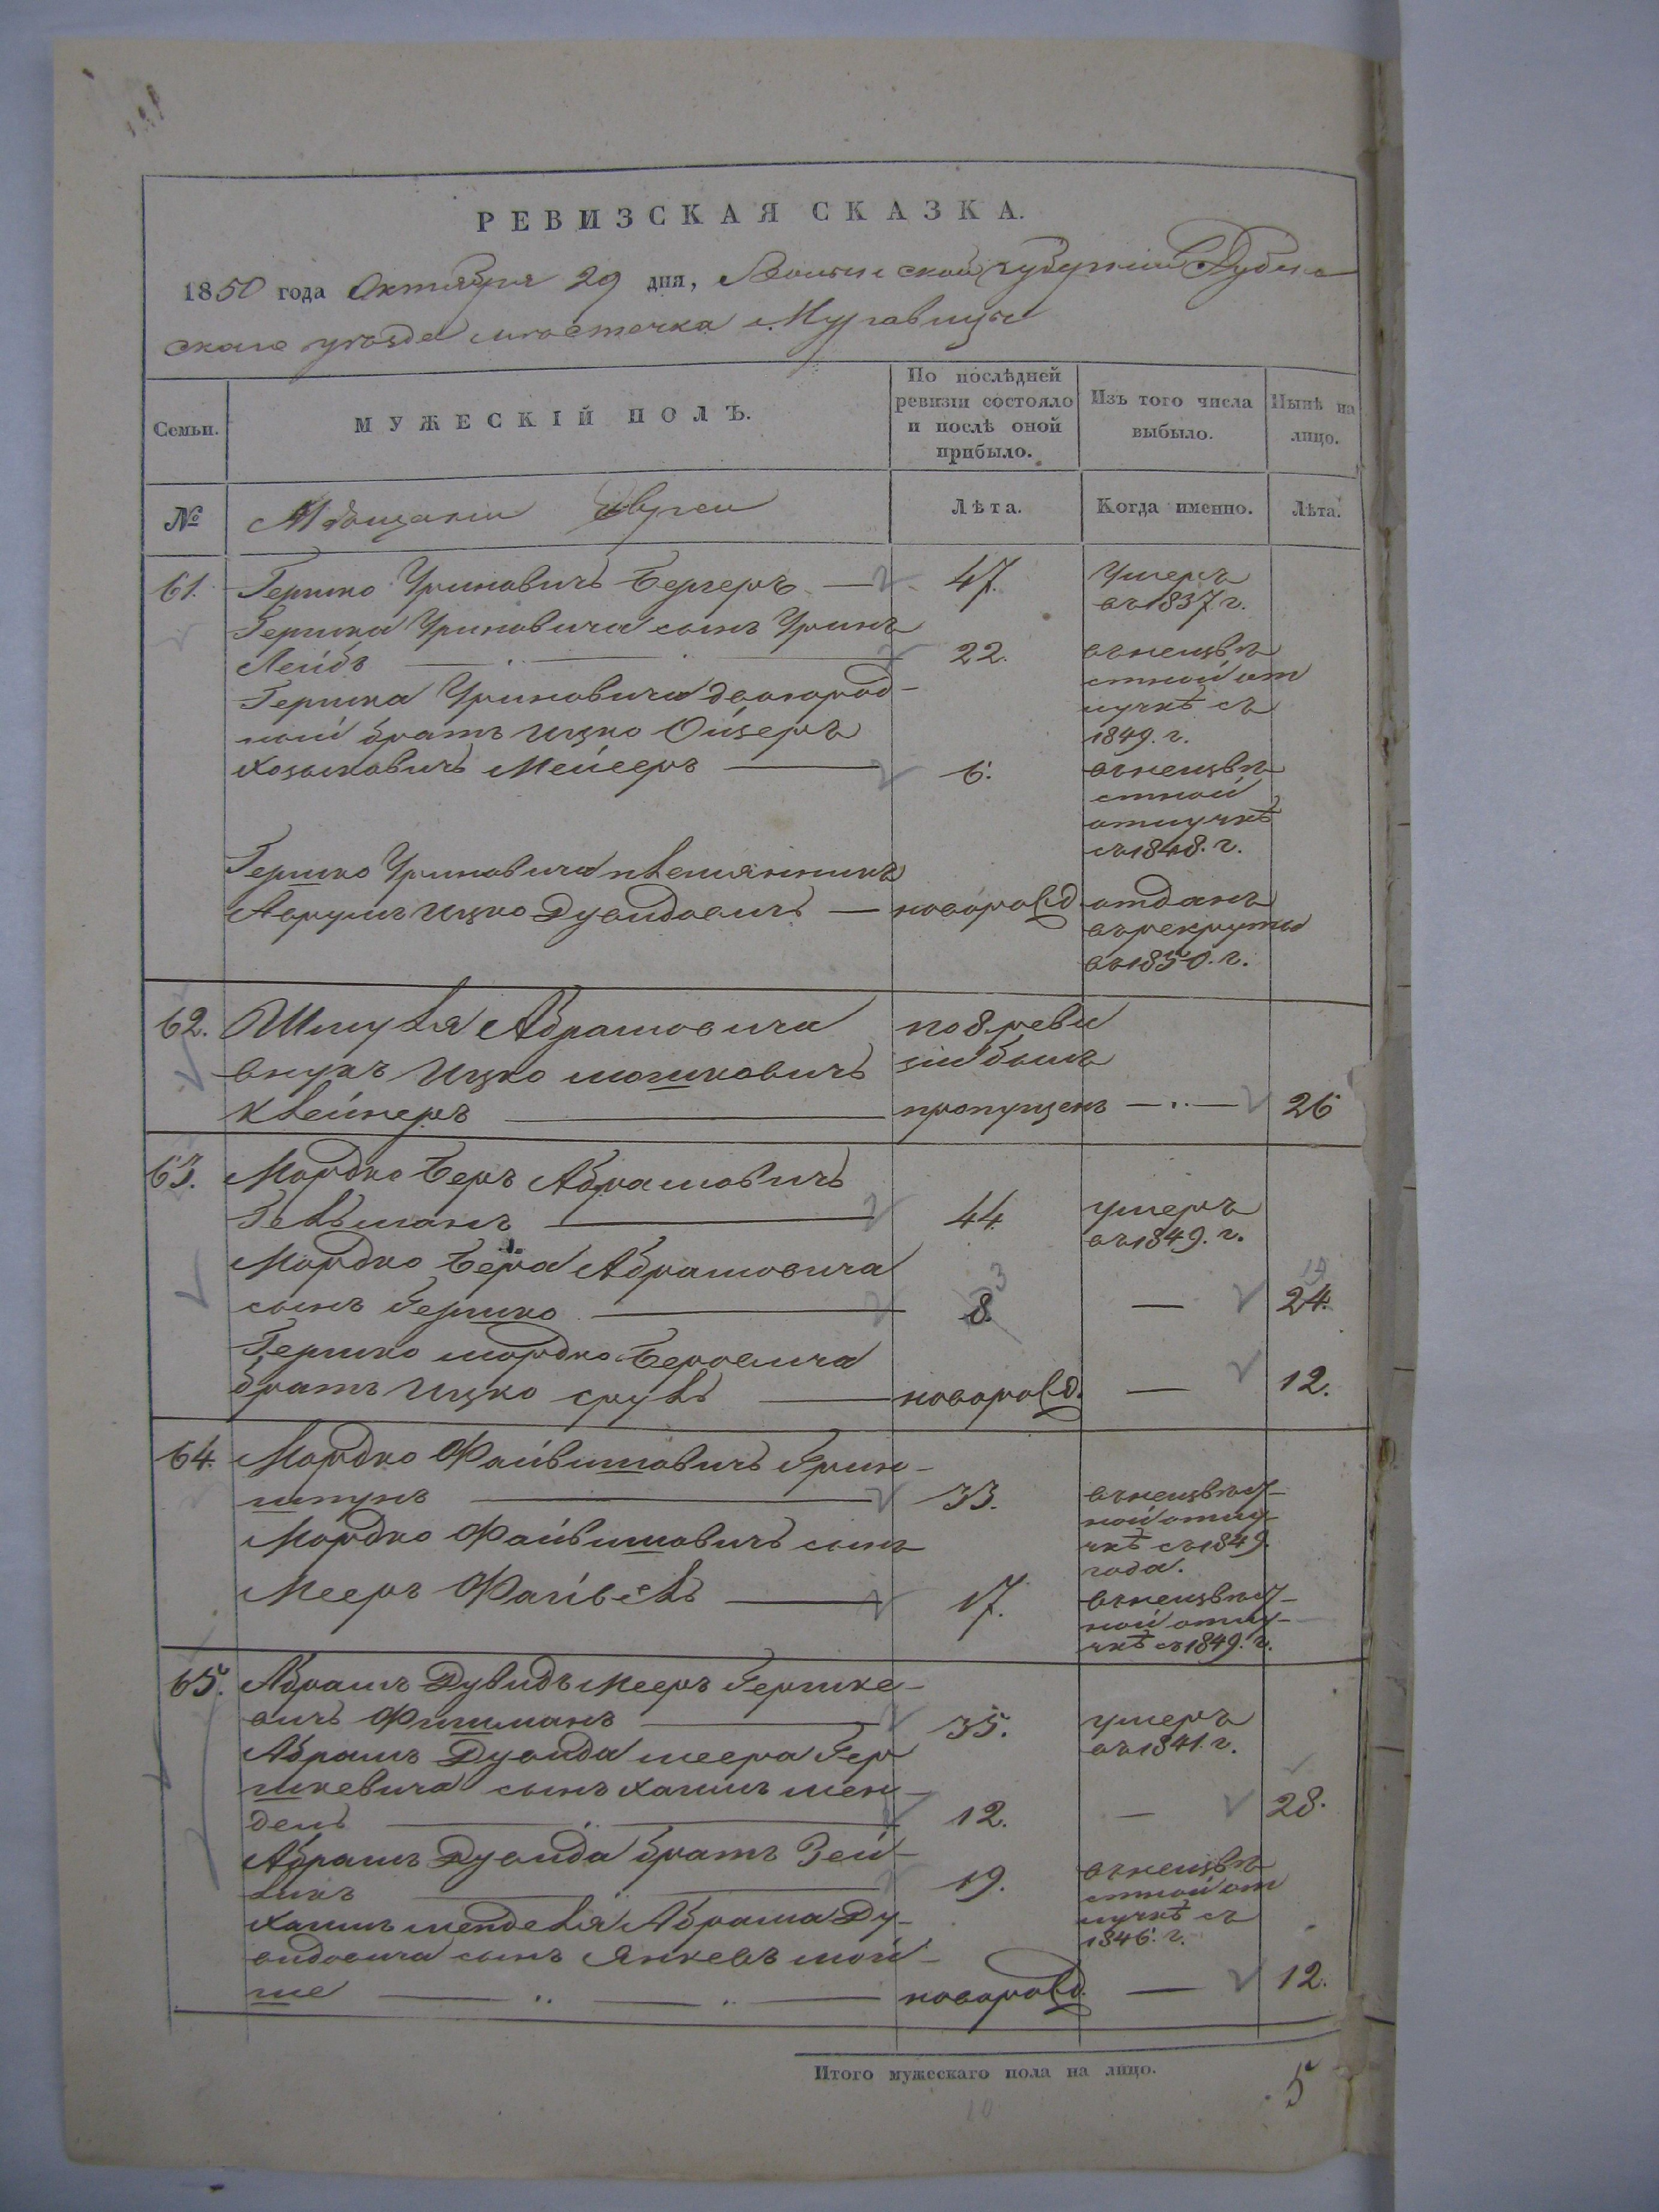 РЕВИЗСКАЯ СКАЗКА.
1850 года Октября 29 дня, Волынской губернии Дубен
скаго уезда местечка Муравицы
Семьи.
МУЖЕСКІЙ ПОЛЪ.
По послѣдней ревизіи состояло и послѣ оной прибыло.
Изъ того числа выбыло.
Нынѣ на лицо.
№
Мѣщани Евреи
Лѣта.
Когда именно.
Лѣта.
61. Гершко Уриновичъ Бергеръ — 47. Умеръ
въ 1837. г.
Гершка Уриновича сынъ Уринъ
Лейбъ — 22. въ неизвѣ
стной от
лучкѣ съ
1849. г.
Гершка Уриновича двоюрод-
ный братъ Ицко Ойзеръ
Хаськовичъ Мейееръ — 6. въ неизвѣ
стной
отлучкѣ
съ 1848. г.
Гершко Уриновича племянникъ
Аврумъ Ицко Дувидовичъ — новорожд. отданъ
въ рекруты
въ 1850. г.
62. Шмуля Абрамовича по 8 реви
внукъ Ицко Мошковичъ зіи былъ
Клейнеръ — пропущенъ — 26
63. Мордко Беръ Абрамовичъ
Гельманъ — 44. умеръ
въ 1849. г.
Мордко Бера Абрамовича
сынъ Гершко — 8. 3 — 24. 19
Гершко Мордко Беровича
братъ Ицко Сруль — новорожд. — 12.
64. Мордко Файвишовичъ Грин-
штупъ — 33. въ неизвѣст-
ной отлу-
чкѣ съ 1849.
года.
Мордко Файвишовичъ сынъ
Мееръ Файвель — 17. въ неизвѣст-
ной отлу-
чкѣ съ 1849. г.
65. Абрамъ Дувидъ Мееръ Гершко-
вичъ Фишманъ — 35. умеръ
въ 1841. г.
Абрамъ Дувида Меера Гер
шкевича сынъ Хаимъ Мен-
дель — 12. — 28.
Абрамъ Дувида братъ Зей-
ликъ — 19. въ неизвѣ
стной от
лучкѣ съ
1846. г.
Хаимъ Менделя Абрама Ду-
видовича сынъ Янкевъ Мой-
ше — новорожд. — 12.
Итого мужескаго пола на лицо.
5